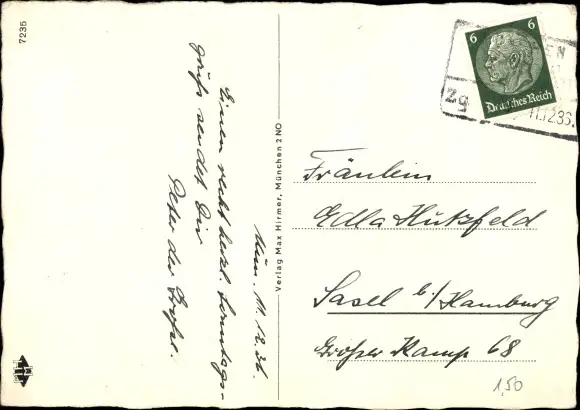 7235
Mün. 11.12.36.
Einen recht herzl. Sonntags-
gruß sendet Dir
Peter der Große.
Verlag Max Hirmer, München 2 NO
6 6
Deutsches Reich
EN
Zg
11.12.36.
Fräulein
Edla Hutzfeld
Sasel b./Hamburg
Großer Kamp 68
1,50